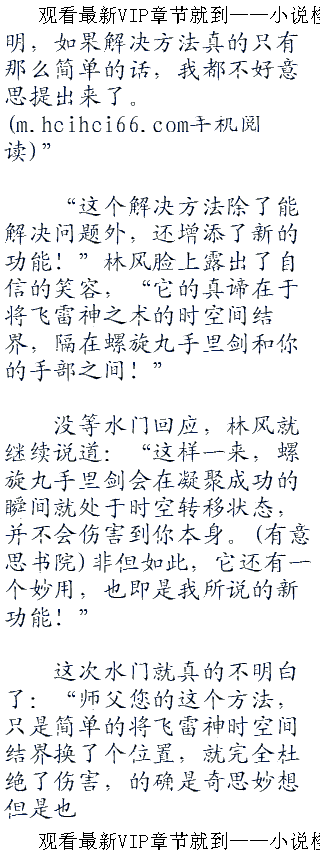 观看最新VIP章节就到——小说检
明，如果解决方法真的只有
那么简单的话，我都不好意
思提出来了。
(m.hcihci66.com手机阅
读)”
“这个解决方法除了能
解决问题外，还增添了新的
功能！”林风脸上露出了自
信的笑容，“它的真谛在于
将飞雷神之术的时空间结
界，隔在螺旋丸手里剑和你
的手部之间！”
没等水门回应，林风就
继续说道：“这样一来，螺
旋丸手里剑会在凝聚成功的
瞬间就处于时空转移状态，
并不会伤害到你本身。(有意
思书院)非但如此，它还有一
个妙用，也即是我所说的新
功能！”
这次水门就真的不明白
了：“师父您的这个方法，
只是简单的将飞雷神时空间
结界换了个位置，就完全杜
绝了伤害，的确是奇思妙想
但是也
观看最新VIP章节就到——小说检